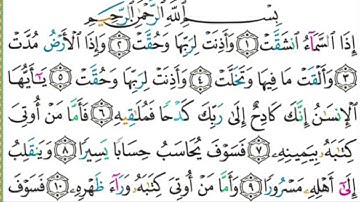 بِسْمِ ٱللَّهِ ٱلرَّحْمَٰنِ ٱلرَّحِيمِ
إِذَا ٱلسَّمَآءُ ٱنشَقَّتْ ١ وَأَذِنَتْ لِرَبِّهَا وَحُقَّتْ ٢ وَإِذَا ٱلْأَرْضُ مُدَّتْ
٣ وَأَلْقَتْ مَا فِيهَا وَتَخَلَّتْ ٤ وَأَذِنَتْ لِرَبِّهَا وَحُقَّتْ ٥ يَٰٓأَيُّهَا
ٱلْإِنسَٰنُ إِنَّكَ كَادِحٌ إِلَىٰ رَبِّكَ كَدْحًا فَمُلَٰقِيهِ ٦ فَأَمَّا مَنْ أُوتِىَ
كِتَٰبَهُۥ بِيَمِينِهِۦ ٧ فَسَوْفَ يُحَاسَبُ حِسَابًا يَسِيرًا ٨ وَيَنقَلِبُ
إِلَىٰٓ أَهْلِهِۦ مَسْرُورًا ٩ وَأَمَّا مَنْ أُوتِىَ كِتَٰبَهُۥ وَرَآءَ ظَهْرِهِۦ ١٠ فَسَوْفَ